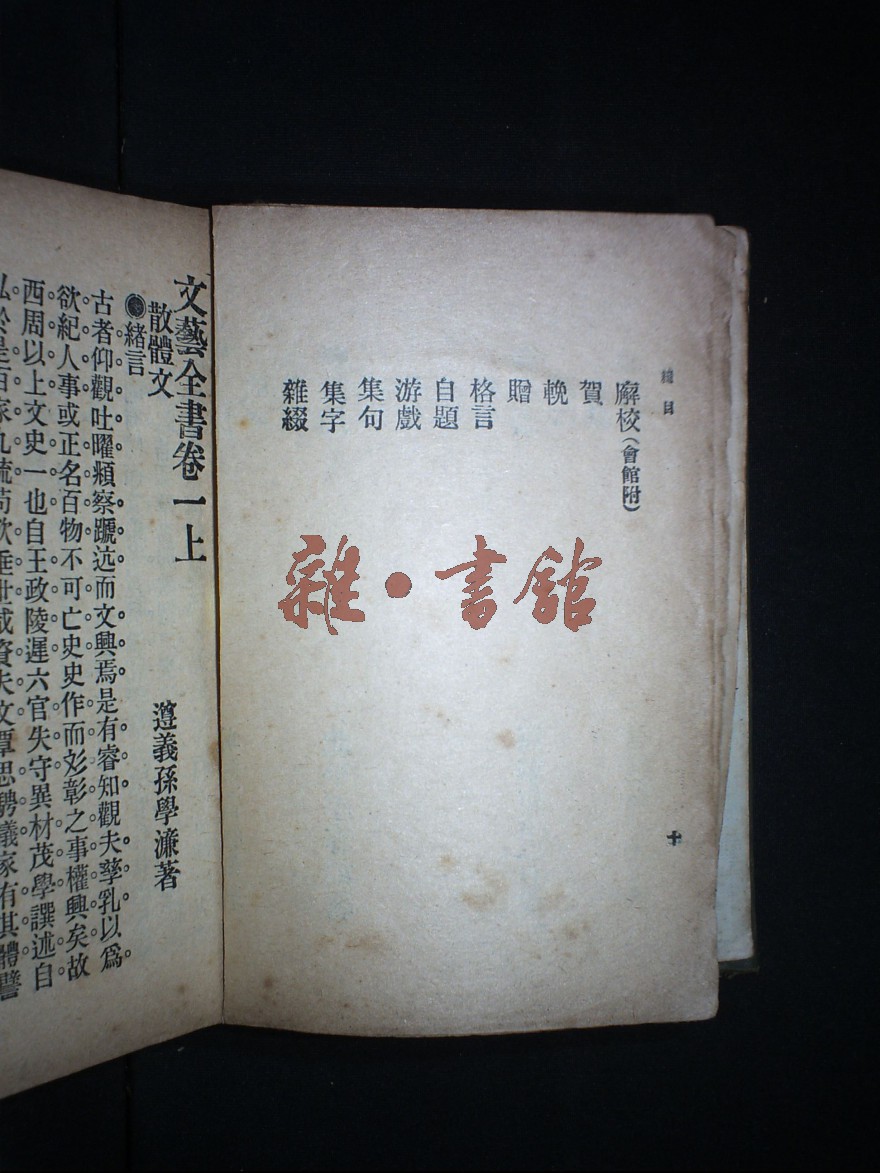 總目
廨校(會館附)
賀
輓
贈
格言
自題
游戲
集句
集字
雜綴
十
雜·書館
文藝全書卷一上
遵義孫學濂著
散體文
●緒言
古者仰觀吐曜頫察蹏迒而文興焉是有睿知觀夫孳乳以爲
欲紀人事或正名百物不可亡史史作而彣彰之事權輿矣故
西周以上文史一也自王政陵遲六官失守異材茂學譔述自
於是百家九流